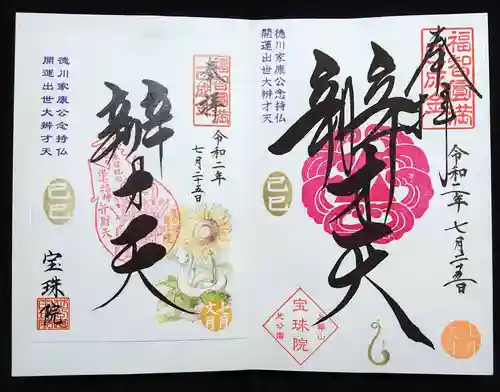 奉拝
福智圓満
令和二年
七月二十五日
辨才天
徳川家康公念持仏
開運出世大辨才天
己巳
宝珠院
三縁山
芝公園
奉拝
令和二年
七月二十五日
辨才天
徳川家康公念持仏
開運出世大辨才天
己巳
宝珠院
文月